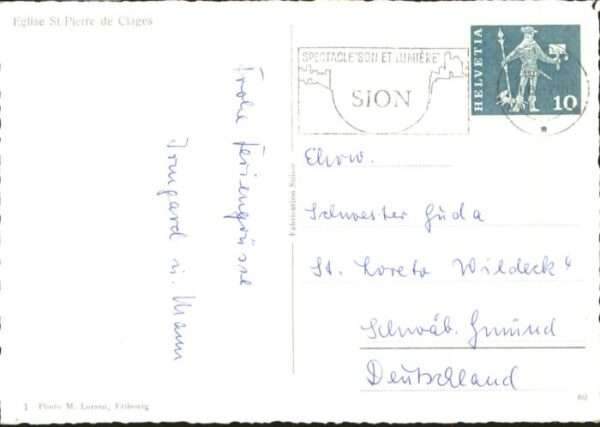 Eglise St Pierre de Clages
SPECTACLE SON ET LUMIÈRE
SION
HELVETIA
10
Frohe Feriengrüsse
Irmgard u. Mann
Fabrication Suisse
Ehrw.
Schwester Guda
St. Loreto Wildeck"
Schwäb. Gmünd
Deutschland
1 Photo M. Lorson, Fribourg